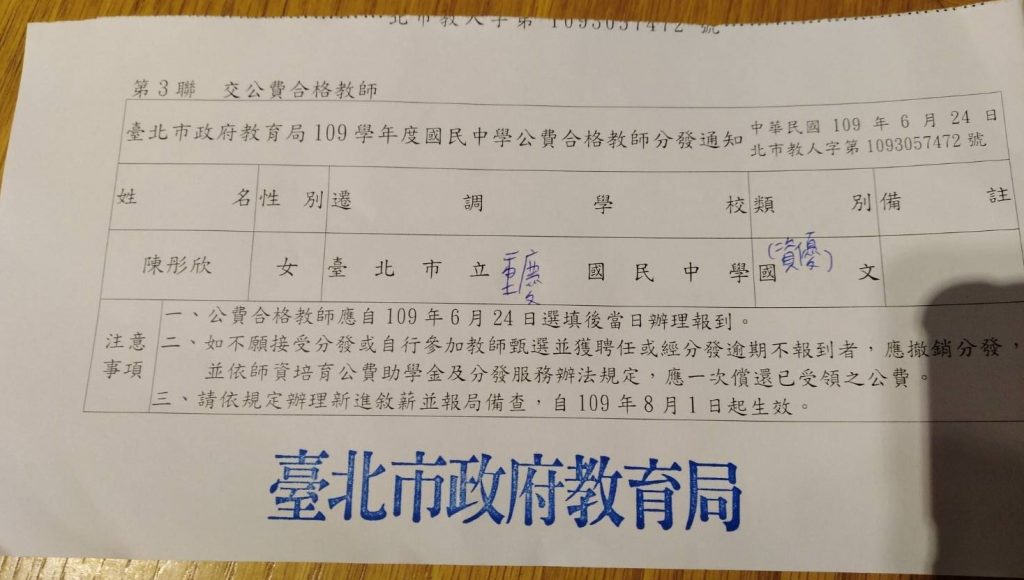 北市教人字第 1093057472 號
第3聯 交公費合格教師
臺北市政府教育局109學年度國民中學公費合格教師分發通知
中華民國 109 年 6 月 24 日
北市教人字第1093057472號
姓名 性別 遷調學校 類別 備註
陳彤欣 女 臺北市立重慶國民中學 國文
(資優)
注意事項
一、公費合格教師應自109年6月24日選填後當日辦理報到。
二、如不願接受分發或自行參加教師甄選並獲聘任或經分發逾期不報到者，應撤銷分發，
並依師資培育公費助學金及分發服務辦法規定，應一次償還已受領之公費。
三、請依規定辦理新進敘薪並報局備查，自109年8月1日起生效。
臺北市政府教育局